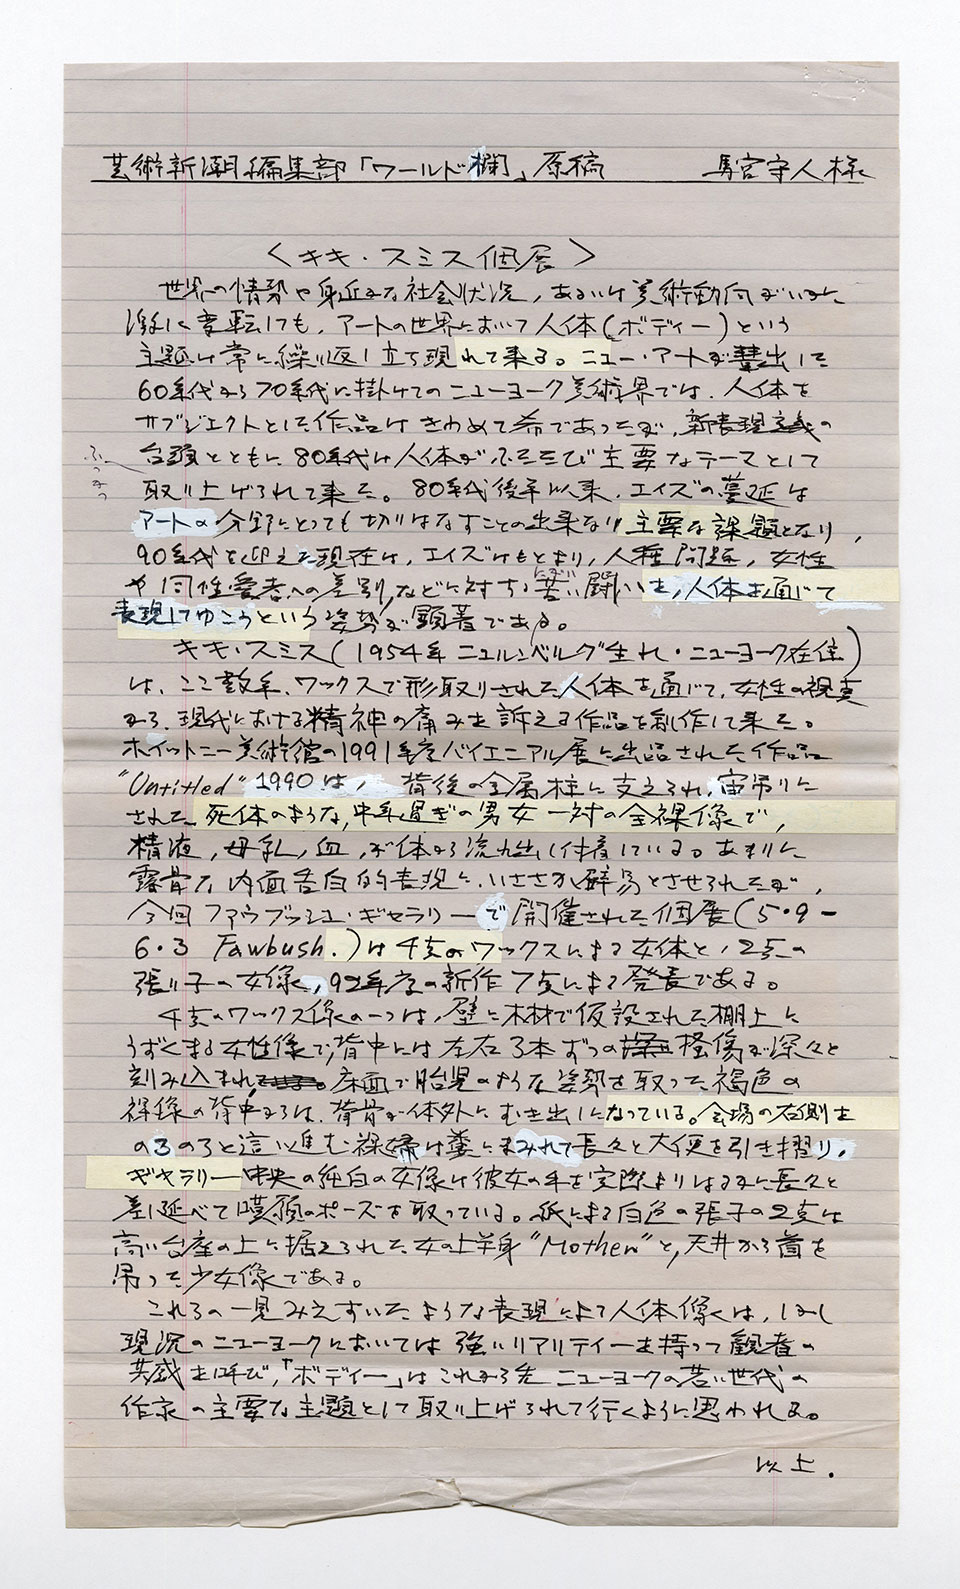 芸術新潮編集部「ワールド欄」原稿 馬宮守人様
〈キキ・スミス個展〉
世界の情勢や身近な社会状況，あるいは美術動向がいかに
激に変転しても，アートの世界において人体(ボディー)という
主題は常に繰り返し立ち現れて来る。ニュー・アートが輩出した
60年代から70年代に掛けてのニューヨーク美術界では，人体を
サブジェクトとした作品はきわめて希であったが，新表現主義の
台頭とともに80年代は人体がふたたび主要なテーマとして
取り上げられて来た。80年代後半以来，エイズの蔓延は
アートの分野にとっても切りはなすことの出来ない主要な課題となり，
90年代を迎えた現在は，エイズはもとより，人種問題，女性
や同性愛者への差別，などに対する苦い闘いを，人体を通じて
表現してゆこうという姿勢が顕著である。
キキ・スミス(1954年ニュルンベルグ生れ・ニューヨーク在住)
は，ここ数年，ワックスで形取りされた人体を通じて，女性の視点
から，現代における精神の痛みを訴える作品を制作して来た。
ホイットニー美術館の1991年度バイエニアル展に出品された作品
"Untitled" 1990は，背後の金属柱に支えられ，宙吊りに
された，死体のような，中年過ぎの男女一対の全裸像で，
精液，母乳，血，が体から流れ出し付着している。あまりに
露骨な内面告白的表現に，いささか辟易とさせられたが，
今回ファウブッシュ・ギャラリーで開催された個展(5・9-
6・3 Fawbush.)は4点のワックスによる女体と，2点の
張り子の女像，92年度の新作7点による発表である。
4点のワックス像の一つは，壁に木材で仮設された棚上に
うずくまる女性像で，背中には左右3本ずつの掻傷が深々と
刻み込まれ，床面で胎児のような姿勢を取った褐色の
裸像の背中からは，背骨が体外にむき出しになっている。会場の右側を
のろのろと這い進む裸婦は糞にまみれて長々と大便を引き摺り，
ギャラリー中央の純白の女像は彼女の手を実際よりはるかに長々と
差し延べて嘆願のポーズを取っている。紙による白色の張子の2点は
高い台座の上に据えられた女の上半身"Mother"と，天井から首を
吊った少女像である。
これらの一見みえすいたような表現によて人体像は，しかし
現況のニューヨークにおいては強いリアリティーを持って観者の
共感を呼び，「ボディー」はこれから先ニューヨークの若い世代の
作家の主要な主題として取り上げられて行くように思われる。
以上．